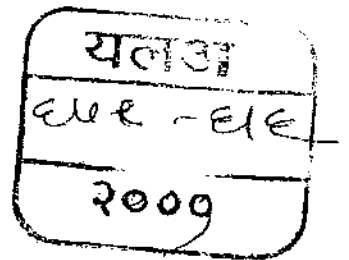 यलअ
६५९ -६/६
२००१